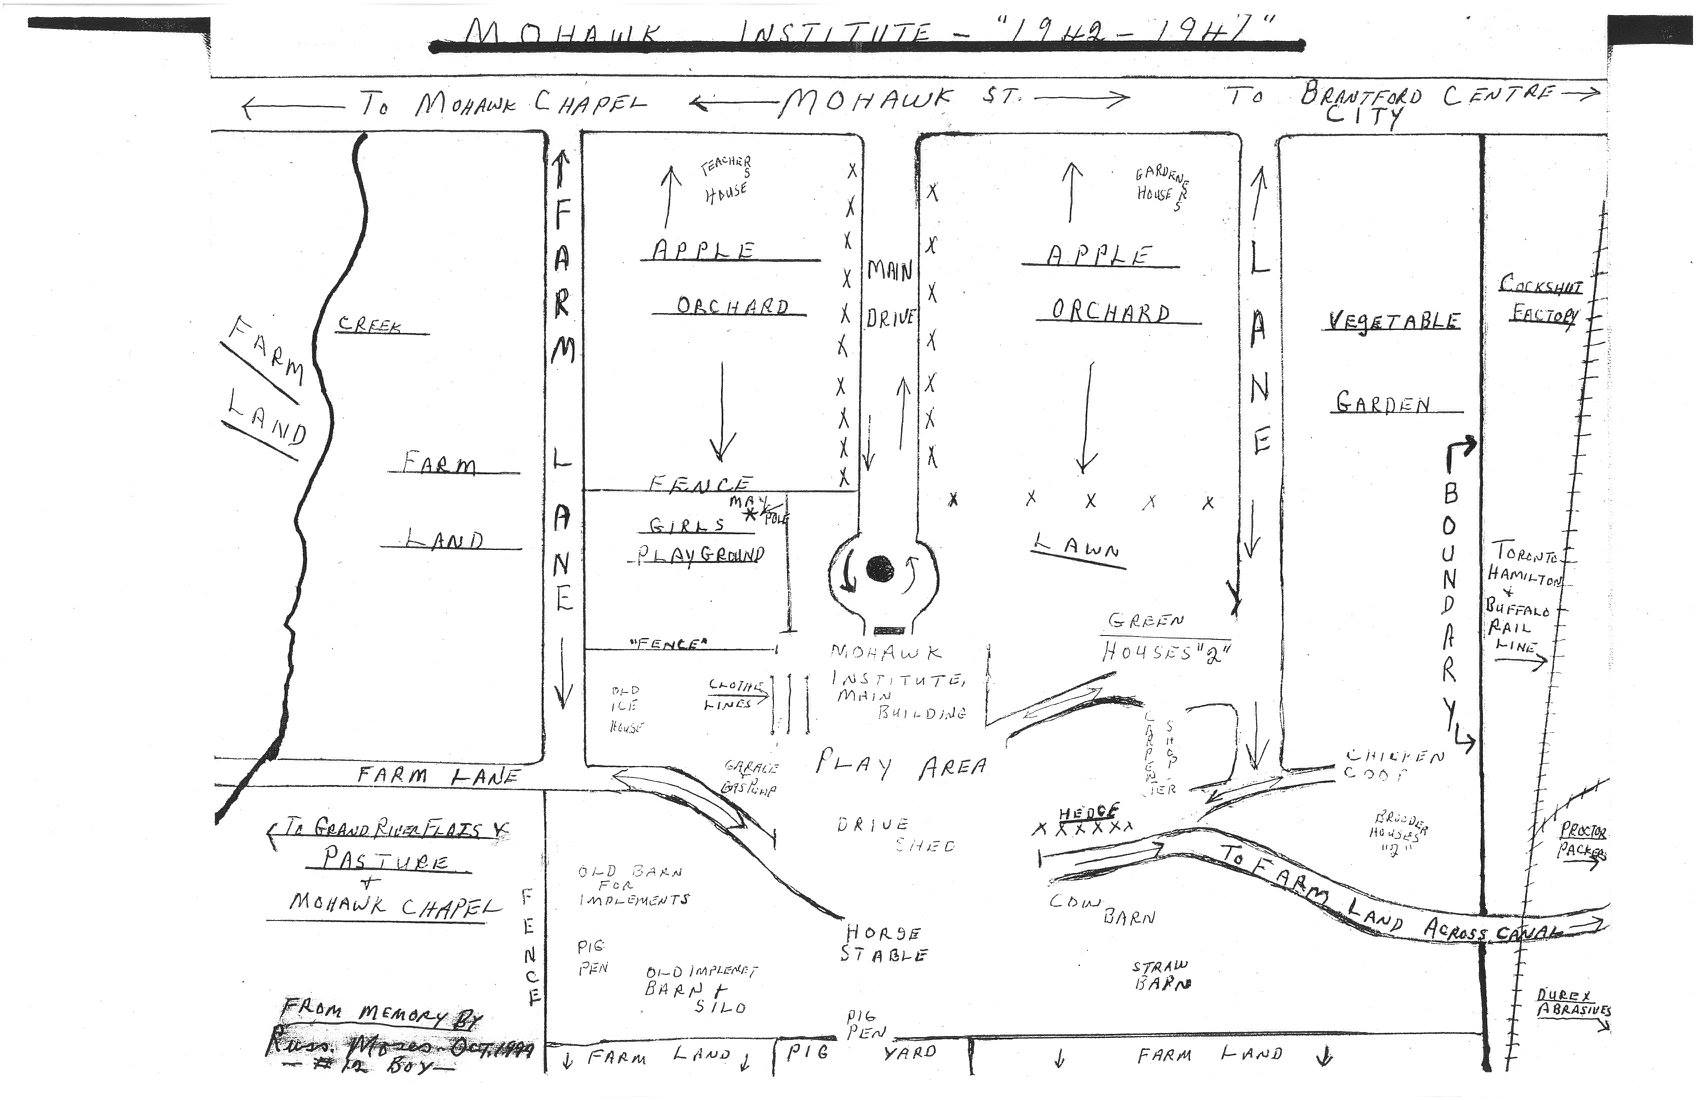 MOHAWK INSTITUTE - "1942 - 1947"
TO MOHAWK CHAPEL
MOHAWK ST.
TO BRANTFORD CENTRE
CITY
TEACHERS
HOUSE
GARDENERS
HOUSE
APPLE
ORCHARD
MAIN
DRIVE
APPLE
ORCHARD
FARM LANE
LANE
VEGETABLE
GARDEN
COCKSHUT
FACTORY
CREEK
FARM
LAND
FARM
LAND
FENCE
MAY
POLE
GIRLS
PLAYGROUND
LAWN
BOUNDARY
TORONTO
HAMILTON
+
BUFFALO
RAIL
LINE
"FENCE"
GREEN
HOUSES "2"
MOHAWK
INSTITUTE,
MAIN
BUILDING
OLD
ICE
HOUSE
CLOTHES
LINES
CARPENTER
SHOP
PLAY AREA
GARAGE
+
GAS PUMP
FARM LANE
CHICKEN
COOP
TO GRAND RIVER FLATS
PASTURE
+
MOHAWK CHAPEL
DRIVE
SHED
HEDGE
BROODER
HOUSES
"2"
PROCTOR
PACKERS
OLD BARN
FOR
IMPLEMENTS
FENCE
COW
BARN
TO FARM LAND ACROSS CANAL
HORSE
STABLE
PIG
PEN
OLD IMPLEMET
BARN +
SILO
STRAW
BARN
DUREX
ABRASIVES
FROM MEMORY BY
Russ. Moses - OCT. 1999
- #12 BOY -
PIG
PEN
FARM LAND
PIG YARD
FARM LAND